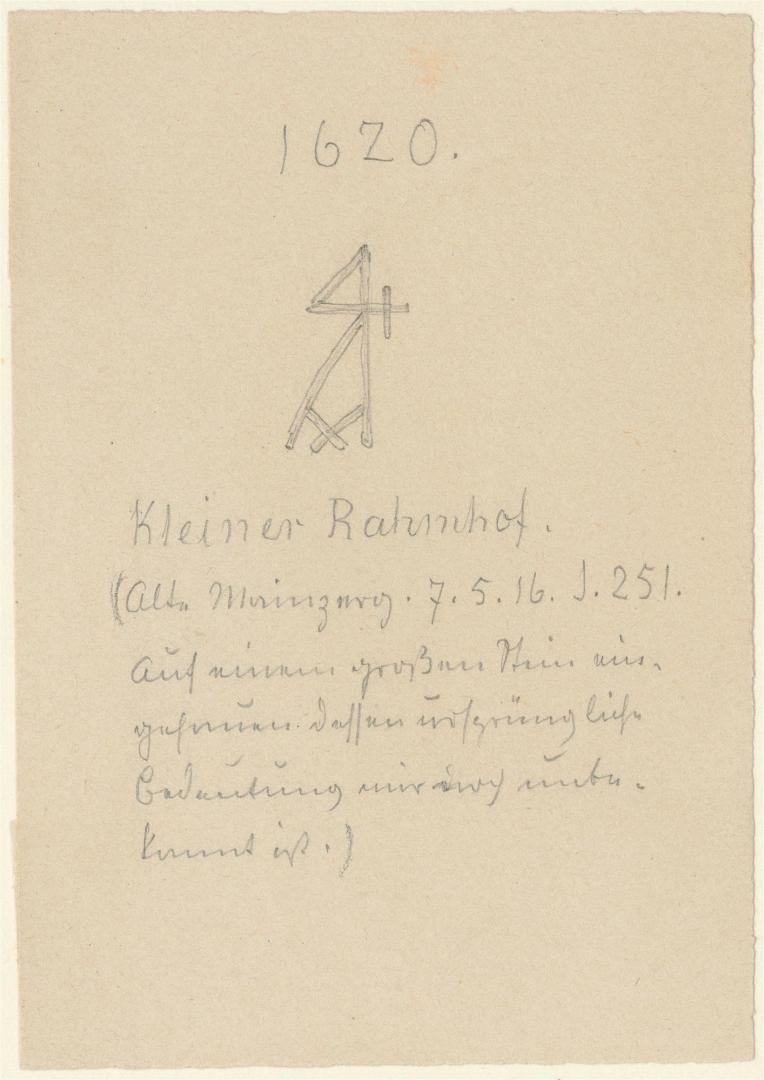 1620.
Kleiner Rahmhof.
(Alte Mainzerg. 7. 5. 16. J. 251.
Auf einem großen Stein ein-
gehauen dessen ursprüngliche
Bedeutung mir noch unbe-
kannt ist.)